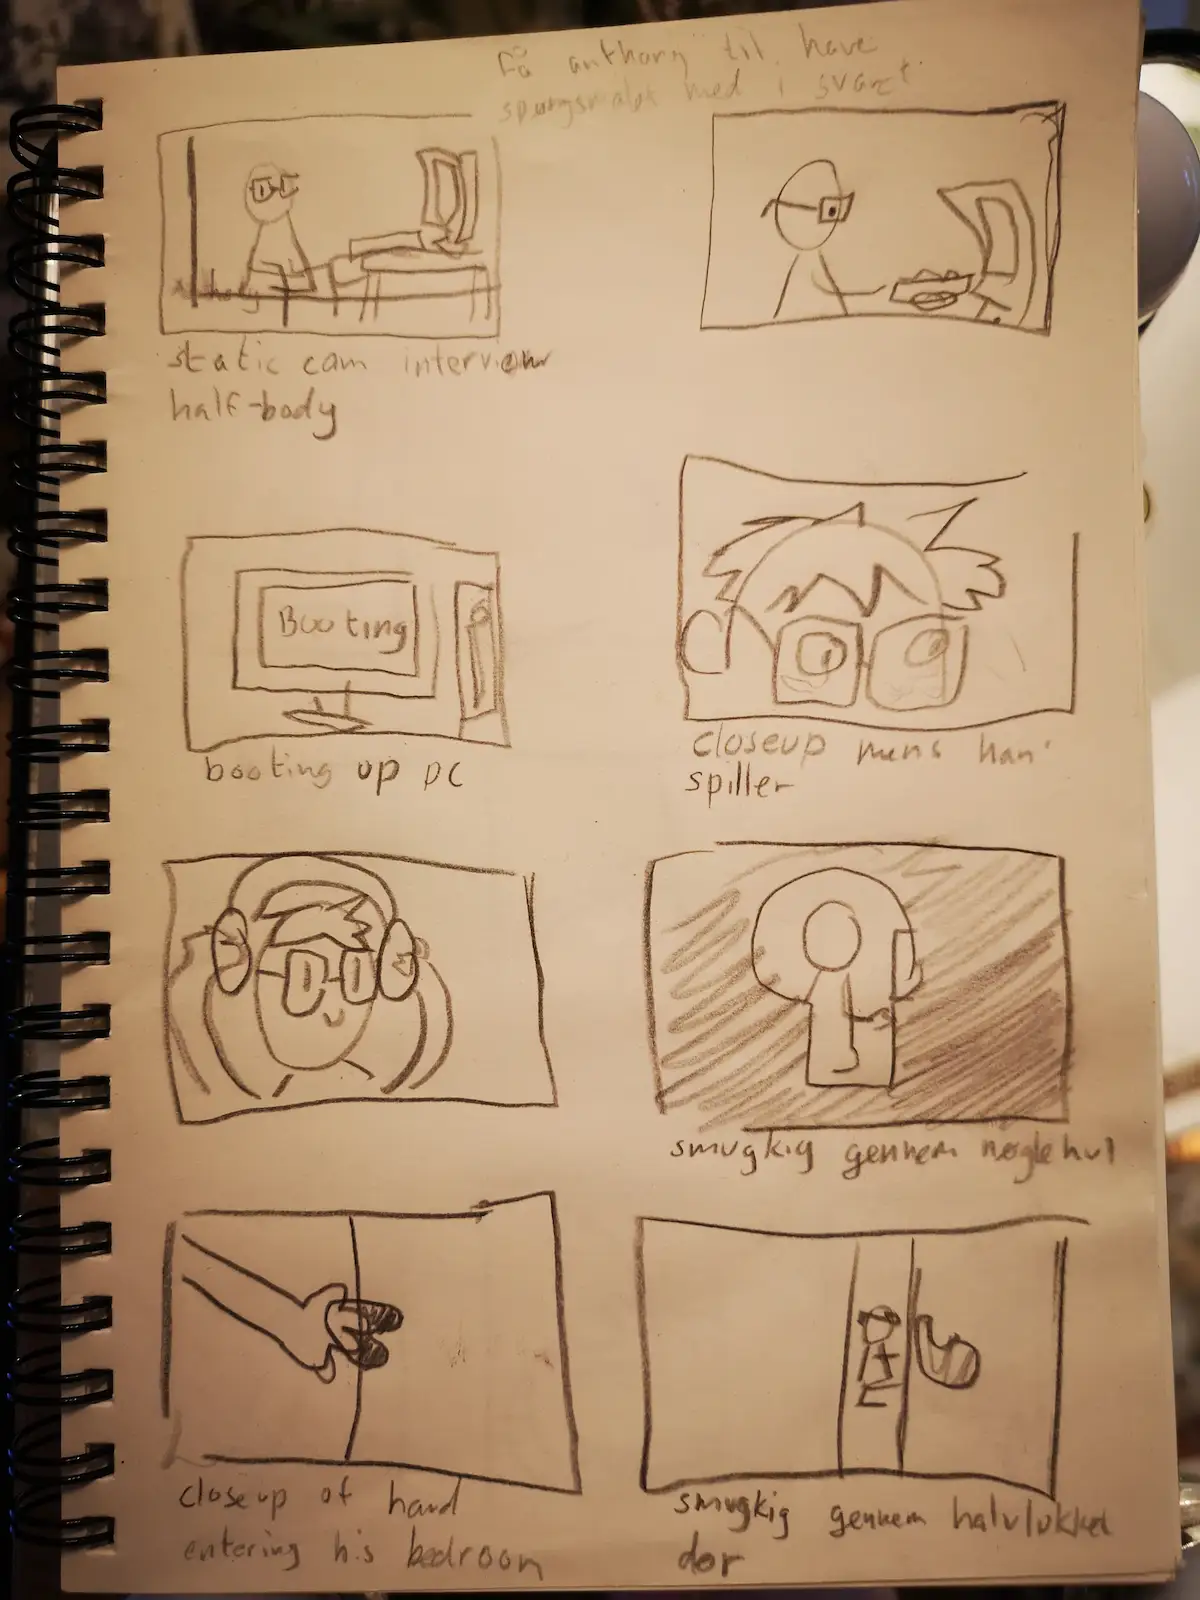 Få anthony til have
spørgsmålet med i svaret
static cam interview
half-body
Booting
booting up pc
closeup mens han
spiller
smugkig gennem nøglehul
closeup of hand
entering his bedroom
smugkig gennem halvlukket
dør